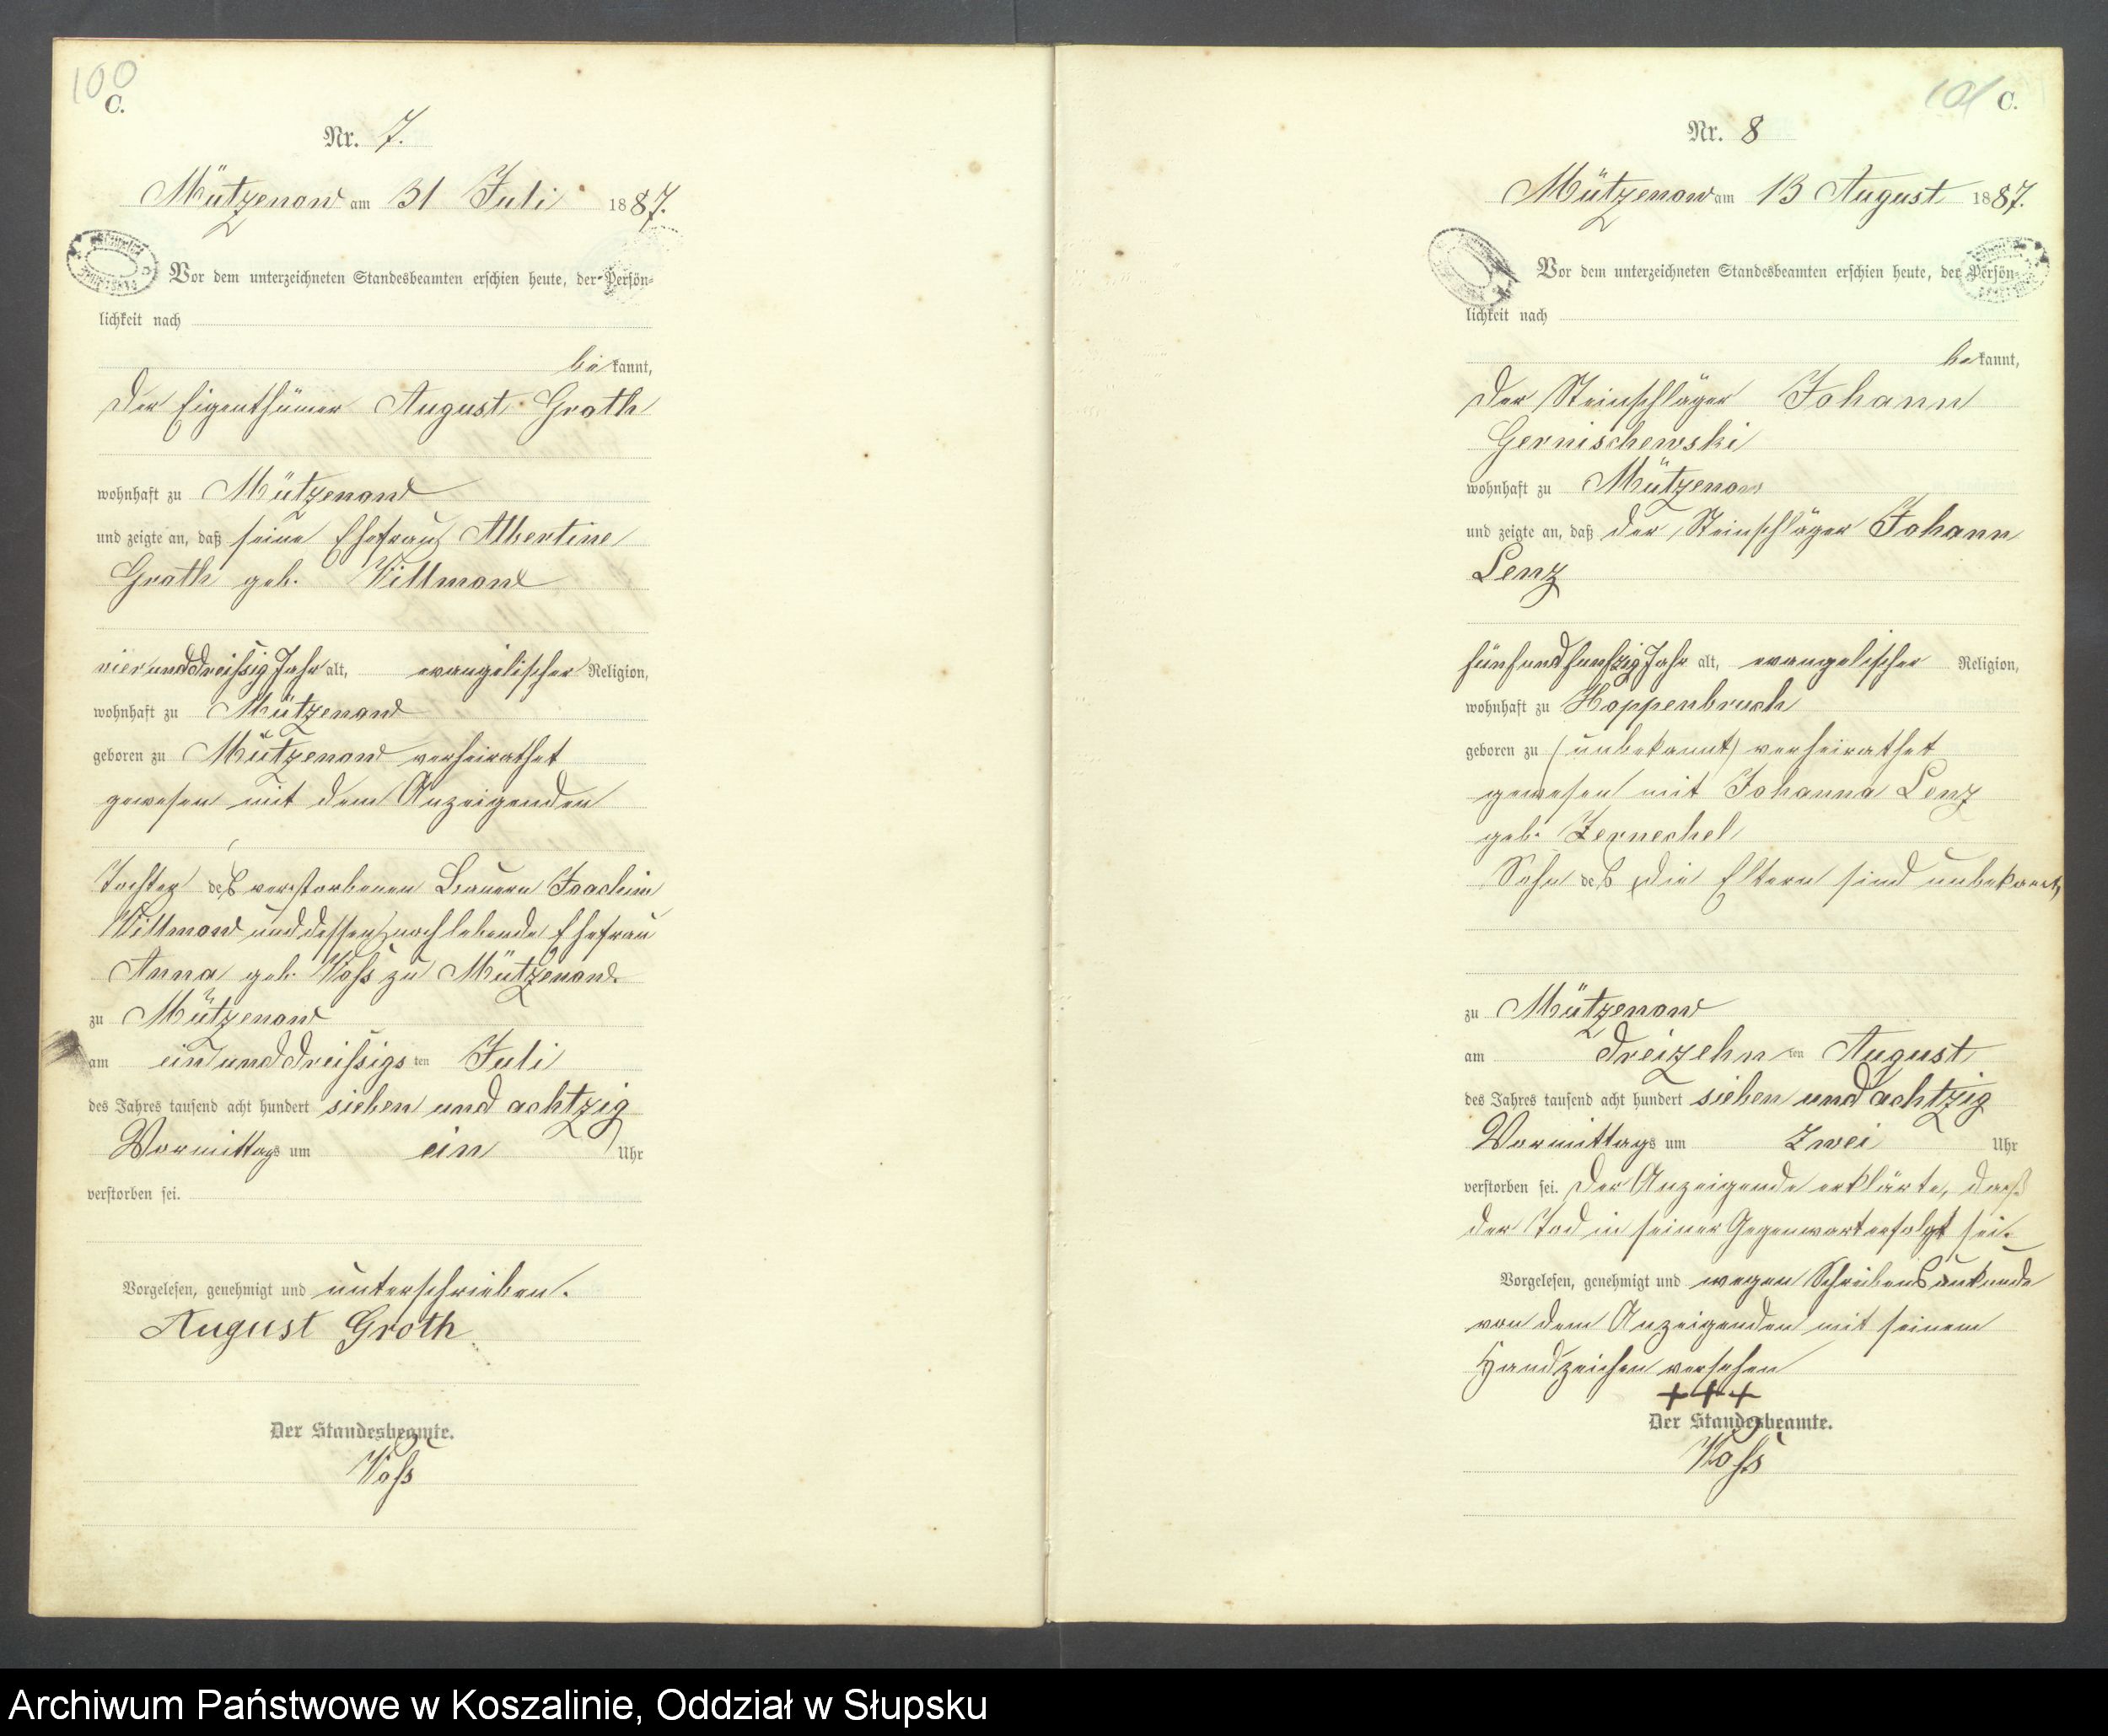 100
C.
Nr. 7.
Mützenow am 31 Juli 1887.
Vor dem unterzeichneten Standesbeamten erschien heute, der Persön-
lichkeit nach
bekannt,
der Eigenthümer August Groth
wohnhaft zu Mützenow
und zeigte an, daß seine Ehefrau Albertine
Groth geb. Villmow
vierunddreißig Jahr alt, evangelischer Religion,
wohnhaft zu Mützenow
geboren zu Mützenow verheirathet
gewesen mit dem Anzeigenden
Tochter des verstorbenen Bauern Joachim
Villmow und dessen noch lebende Ehefrau
Anna geb. Voß zu Mützenow.
zu Mützenow
am ein und dreißigsten Juli
des Jahres tausend acht hundert sieben und achtzig
Vormittags um ein Uhr
verstorben sei.
Vorgelesen, genehmigt und unterschrieben.
August Groth
Der Standesbeamte.
Voß
101 C.
Nr. 8
Mützenow am 13 August 1887.
Vor dem unterzeichneten Standesbeamten erschien heute, der Persön-
lichkeit nach
bekannt,
der Steinschläger Johann
Gernischewski
wohnhaft zu Mützenow
und zeigte an, daß der Steinschläger Johann
Lenz
fünfundfunfzig Jahr alt, evangelischer Religion,
wohnhaft zu Hoppenbruch
geboren zu (unbekannt) verheirathet
gewesen mit Johanna Lenz
geb. Zernechel
Sohn des (die Eltern sind unbekannt)
zu Mützenow
am dreizehnten August
des Jahres tausend acht hundert sieben und achtzig
Vormittags um zwei Uhr
verstorben sei. Der Anzeigende erklärte, daß
der Tod in seiner Gegenwart erfolgt sei.
Vorgelesen, genehmigt und wegen Schreibensunkunde
von dem Anzeigenden mit seinem
Handzeichen versehen
+++
Der Standesbeamte.
Voß
Archiwum Państwowe w Koszalinie, Oddział w Słupsku